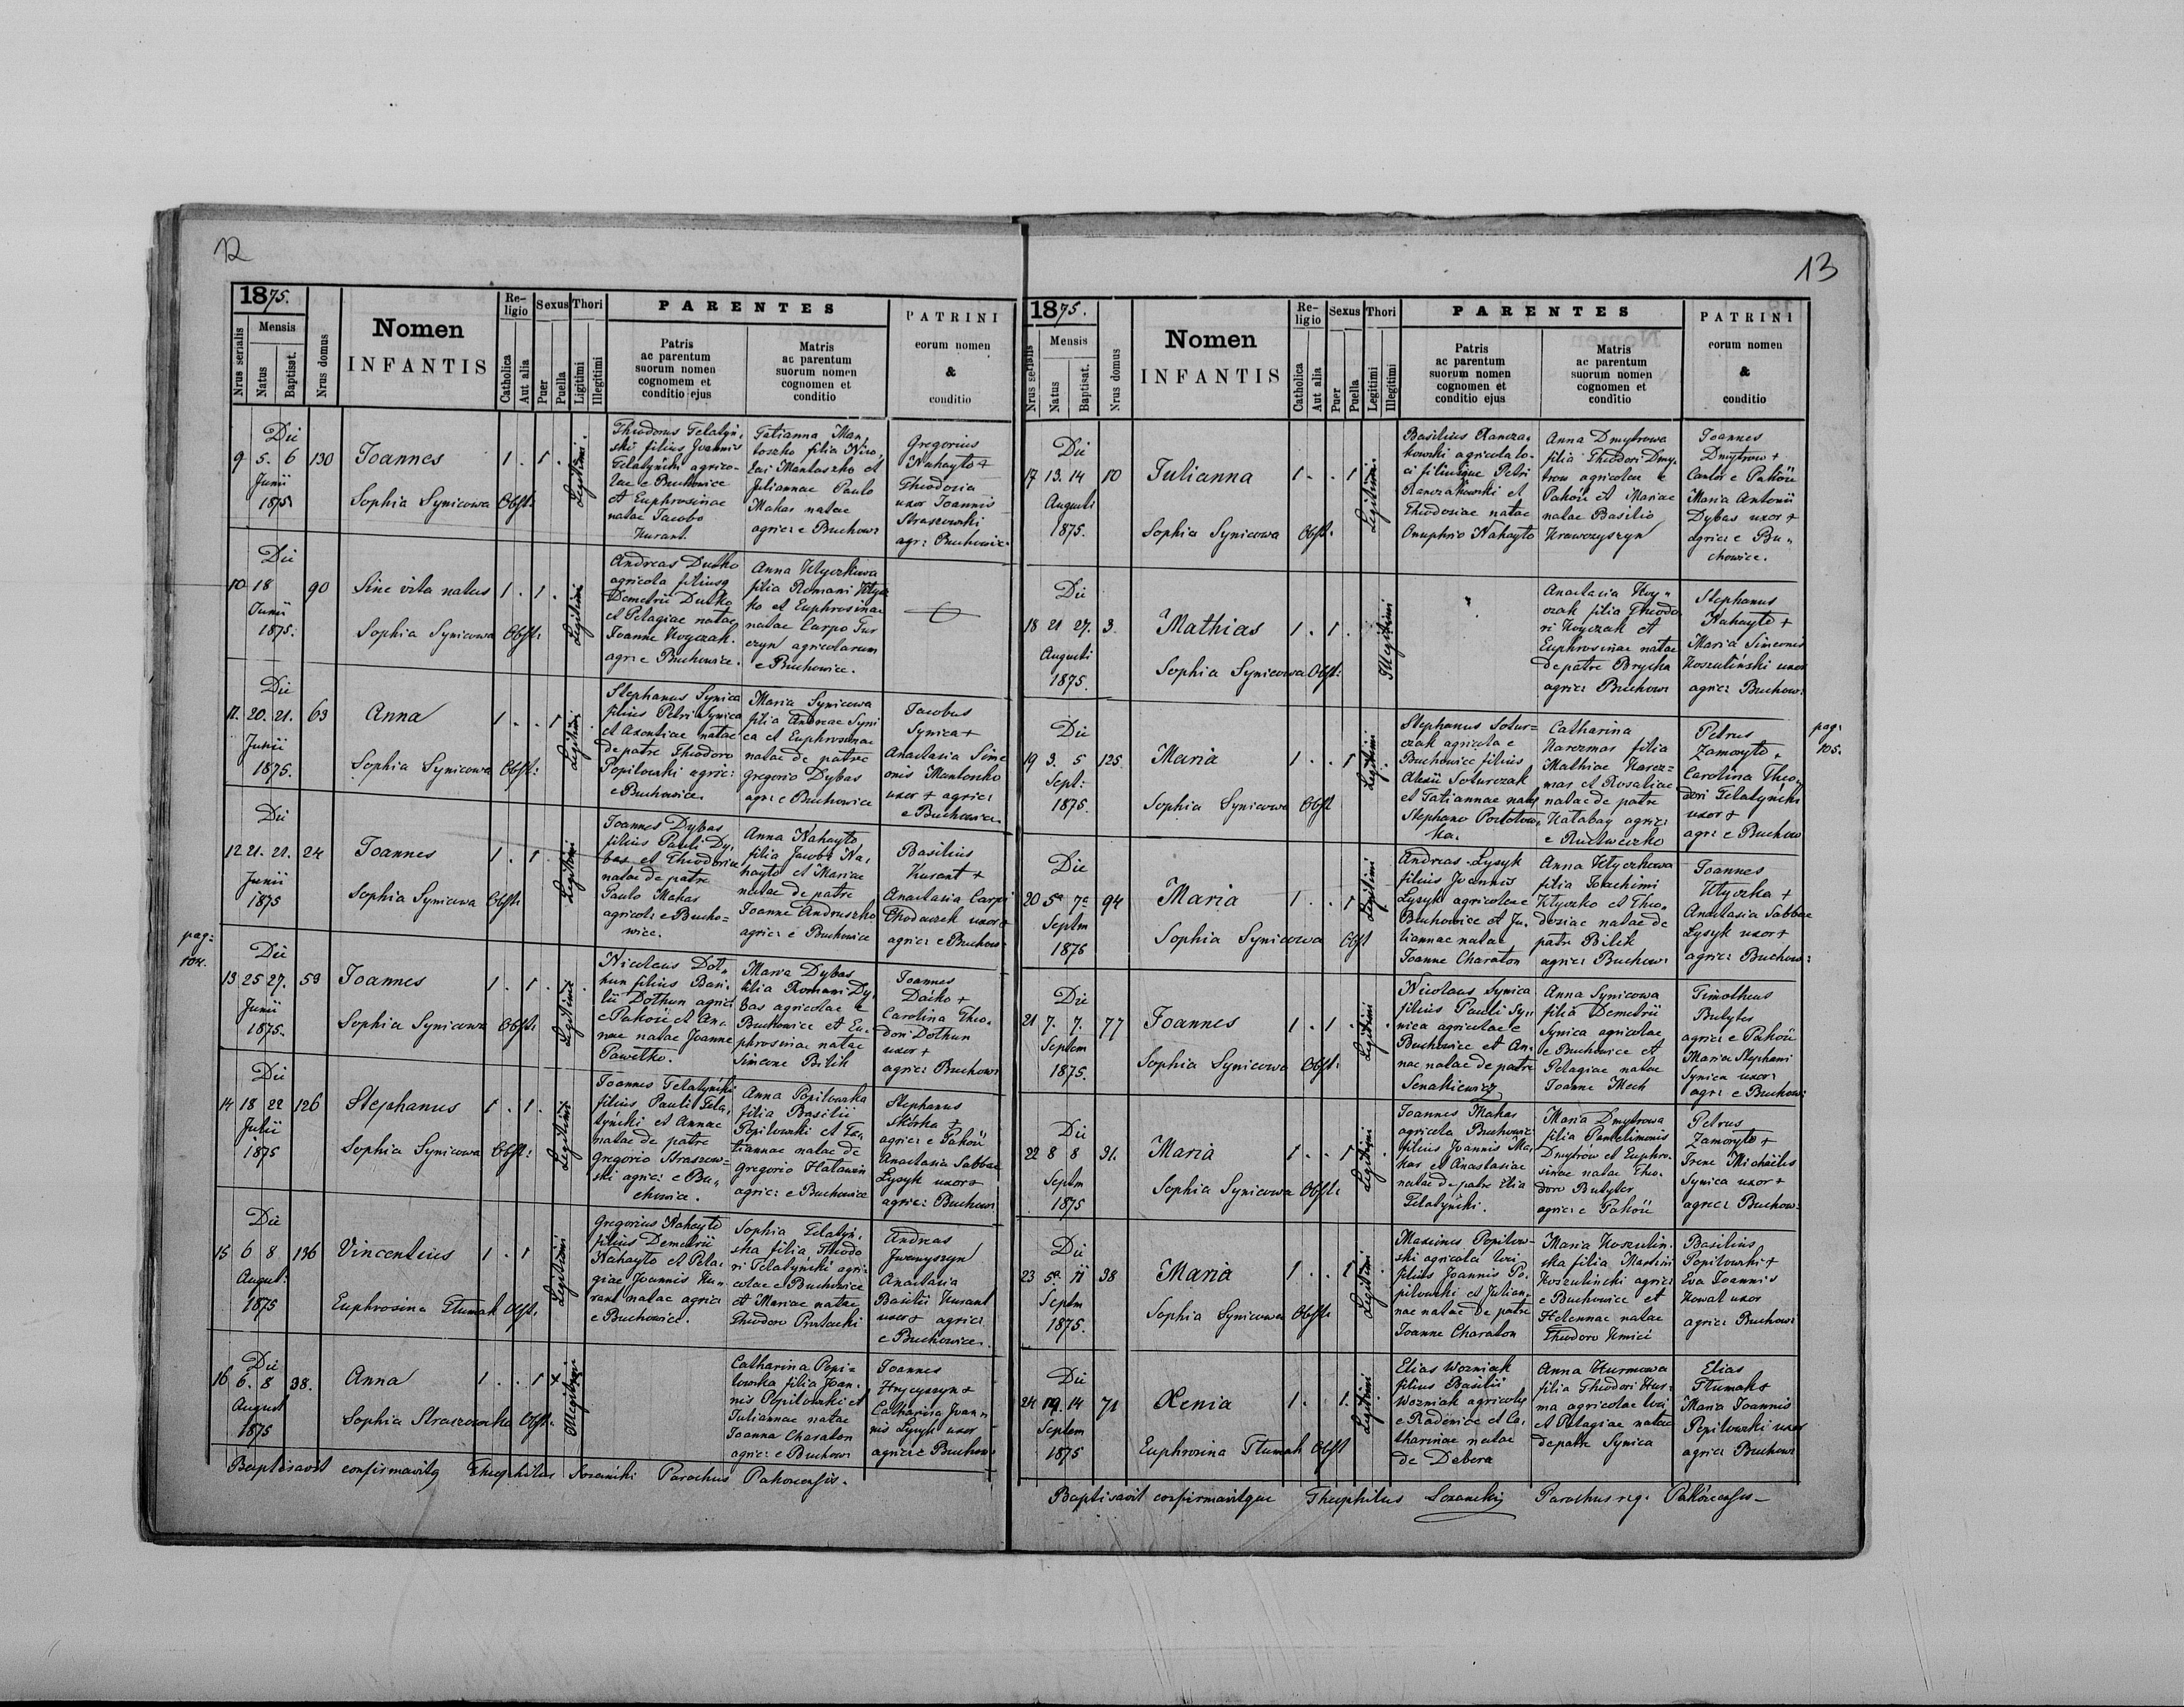 12
1875.
Nrus serialis
Mensis
Natus
Baptisat.
Nrus domus
Nomen
INFANTIS
Re-
ligio
Catholica
Aut alia
Sexus
Puer
Puella
Thori
Ligitimi
Illegitimi
PARENTES
Patris
ac parentum
suorum nomen
cognomem et
conditio ejus
Matris
ac parentum
suorum nomen
cognomen et
conditio
PATRINI
eorum nomen
&
conditio
Die
9 5. 6 130
Junii
1875
Joannes
Sophia Synicowa Obst:
1 . 1 .
Legitimi.
Theodorus Telatyń-
ski filius Joannis
Telatyński agrico-
lae e Buchowice
et Euphrosinae
natae Jacobo
Kurant.
Tatianna Man-
toszko filia Nico-
lai Mantoszko et
Juliannae Paulo
Makar natae
agric: e Buchow:
Gregorius
Nahayto +
Theodosia
uxor Joannis
Straszowski
agr: Buchowic:
Die
10 18 90
Junii
1875.
Sine vita natus
Sophia Synicowa Obst:
1 . 1 .
Legitimi
Andreas Dutko
agricola filiusq
Demetrii Dutko
et Pelagiae natae
Joanne Koyczak.
agr: e Buchowice.
Anna Klyczkowa
filia Romani Klycz
ko et Euphrosinae
natae Carpo Tur
czyn agricolarum
e Buchowice.
Die
11. 20. 21. 63
Junii
1875.
Anna
Sophia Synicowa Obst:
1 . . 1
Legitimi
Stephanus Synica
filius Petri Synica
et Axentiae natae
de patre Theodoro
Popilowski agric:
e Buchowice.
Maria Synicowa
filia Andreae Syni
ca et Euphrosinae
natae de patre
Gregorio Dybas
agr: e Buchowice
Jacobus
Synica +
Anastasia Sime
onis Mantoszko
uxor + agric:
e Buchowice.
Die
12 21. 21. 24
Junii
1875
Joannes
Sophia Synicowa Obst:
1 . 1
Legitimi
Joannes Dybas
filius Pauli Dy-
bas et Theodoriae
natae de patre
Paulo Makar
agricola e Bucho=
wice.
Anna Nahayto
filia Jacobi Na-
hayto et Mariae
natae de patre
Joanne Andruszko
agric: e Buchowice
Basilius
Kurant +
Anastasia Carpi
Chodaczek uxor +
agric: e Buchow:
pag:
104.
Die
13 25 27. 59
Junii
1875.
Joannes
Sophia Synicowa Obst:
1 . 1 .
Legitimi
Nicolaus Dot-
hun filius Basi-
lii Dothun agric:
e Pakość et An-
nae natae Joanne
Pawełko.
Maria Dybas
filia Romani Dy-
bas agricolae e
Buchowice et Eu-
phrosiniae natae
Simeone Bilik
Joannes
Daiko +
Carolina Theo-
dori Dothun
uxor +
agric: Buchow:
Die
14 18 22 126
Julii
1875
Stephanus
Sophia Synicowa Obst:
1 . 1 .
Legitimi
Joannes Telatyński
filius Pauli Tela-
tyński et Annae
natae de patre
Gregorio Straszow=
ski agric: e Bu-
chowice.
Anna Popilowska
filia Basilii
Popilowski et Ta-
tiannae natae de
Gregorio Hatawin
agric: e Buchowice
Stephanus
Skórka +
agric: e Pakość
Anastasia Sabbae
Lysyk uxor +
agric: Buchow:
Die
15 6 8. 136
August:
1875
Vincentius
Euphrosina Tłumak Obst:
1 . 1
Legitimi
Gregorius Nahayto
filius Demetrii
Nahayto et Pela-
giae Joannis Ku-
rant natae agric:
e Buchowice.
Sophia Telatyń-
ska filia Theodo
ri Telatyński agri-
colae e Buchowice
et Mariae natae
Theodoro
Andreas
Iwanyszyn
Anastasia
Basilii Kurant
uxor + agric:
e Buchowice.
Die
16 6. 8 38.
August
1875
Anna
Sophia Straszowska Obst:
1 . . 1 +
Illegitimi
Catharina Popi=
lowska filia Joan-
nis Popilowski et
Juliannae natae
Joanna Charaton
agric: e Buchow:
Joannes
Hrycyszyn +
Catharina Joan-
nis Lysyk uxor
agric: e Buchow:
Baptisavit confirmavitq Theophilus Lozański Parochus Pakoscensis.
13
1875.
Nrus serialis
Mensis
Natus
Baptisat.
Nrus domus
Nomen
INFANTIS
Re-
ligio
Catholica
Aut alia
Sexus
Puer
Puella
Thori
Legitimi
Illegitimi
PARENTES
Patris
ac parentum
suorum nomen
cognomen et
conditio ejus
Matris
ac parentum
suorum nomen
cognomen et
conditio
PATRINI
eorum nomen
&
conditio
Die
17 13. 14 10
Augusti
1875.
Julianna
Sophia Synicowa Obst:
1 . . 1
Legitimi.
Basilius Rancza-
kowski agricola lo-
ci filiusque Petri
Ranczakowski et
Theodosiae natae
Onuphrio Nahayto
Anna Dmytrowa
filia Theodori Dmy-
trow agricolae e
Pakość et Mariae
natae Basilio
Krawczyszyn
Joannes
Dmytrow +
Cantor e Pakość
Maria Antonii
Dybas uxor +
agric: e Bu-
chowice.
Die
18 21 27. 3.
Augusti
1875.
Mathias
Sophia Synicowa Obst:
1 . 1 .
Illegitimi
Anastasia Koy-
czak filia Theodo
ri Koyczak et
Euphrosinae natae
de patre Brycha
agric: Buchow:
Stephanus
Nahayto +
Maria Simeonis
Koszuliński uxor
agric: Buchow:
Die
19 3. 5 125.
Sept:
1875.
Maria
Sophia Synicowa Obst
1 . . 1
Legitimi
Stephanus Sotur=
czak agricola e
Buchowice filius
Alexii Soturczak
et Tatiannae natae
Stephano
Catharina
Karczmar filia
Mathiae Karcz=
mar et Rosaliae
natae de patre
Hatabay agric:
Petrus
Zamoryto +
Carolina Theo-
dori Telatyński
uxor +
agr: e Buchow
pag:
105.
Die
20 5a 7a 94
Septm
1875
Maria
Sophia Synicowa Obst
1 . . 1
Legitimi
Andreas Lysyk
filius Joannis
Lysyk agricolae e
Buchowice et Ju-
liannae natae
Joanne Charaton
Anna Klyczkowa
filia Joachimi
Klyczko et Theo-
dosiae natae de
patre Bilik
agric: Buchow:
Joannes
Klyczka +
Anastasia Sabbae
Lysyk uxor +
agric: Buchow:
Die
21 7. 7. 77
Septem
1875.
Joannes
Sophia Synicowa Obst:
1 . 1 .
Legitimi
Nicolaus Synica
filius Pauli Sy-
nica agricolae e
Buchowice et An-
nae natae de patre
Senakiewicz
Anna Synicowa
filia Demetrii
Synica agricolae
e Buchowice et
Pelagiae natae
Joanne Mech
Timotheus
Bulyter
agric: e Pakość
Maria Stephani
Synica uxor:
agr: e Buchow:
Die
22 8 8 91.
Septm
1875
Maria
Sophia Synicowa Obst:
1 . . 1
Legitimi
Joannes Makar
agricola Buchowic:
filius Joannis Ma-
kar et Anastasiae
natae de patre Ilia
Telatyński.
Maria Dmytrowa
filia Pantelimonis
Dmytrów et Euphro-
sinae natae Theo-
doro Bulyter
agric: e Pakość
Petrus
Zamoryto +
Irene Michaëlis
Synica uxor +
agric: Buchow:
Die
23 5a 11 38
Septm
1875.
Maria
Sophia Synicowa Obst:
1 . . 1
Legitimi
Maximus Popilow-
ski agricola loci
filius Joannis Po-
pilowski et Julian-
nae natae de patre
Joanne Charaton
Maria Koszulin-
ska filia Martini
Koszulinski agric:
e Buchowice et
Helennae natae
Theodoro Kmieć
Basilius
Popilowski +
Eva Joannis
Kowal uxor
agric: Buchow:
Die
24 12. 14 71
Septem
1875
Xenia
Euphrosina Tłumak Obst
1 . . 1.
Legitimi
Elias Wozniak
filius Basilii
Wozniak agricolae
e Radenice et Ca-
tharinae natae
de Debera
Anna Hurmowa
filia Theodori Hur-
ma agricolae loci
et Pelagiae natae
de patre Synica
Elias
Tłumak +
Maria Joannis
Popilowski uxor
agric: Buchow:
Baptisavit confirmavitque Theophilus Lozanski Parochus rg. Pakoscensis